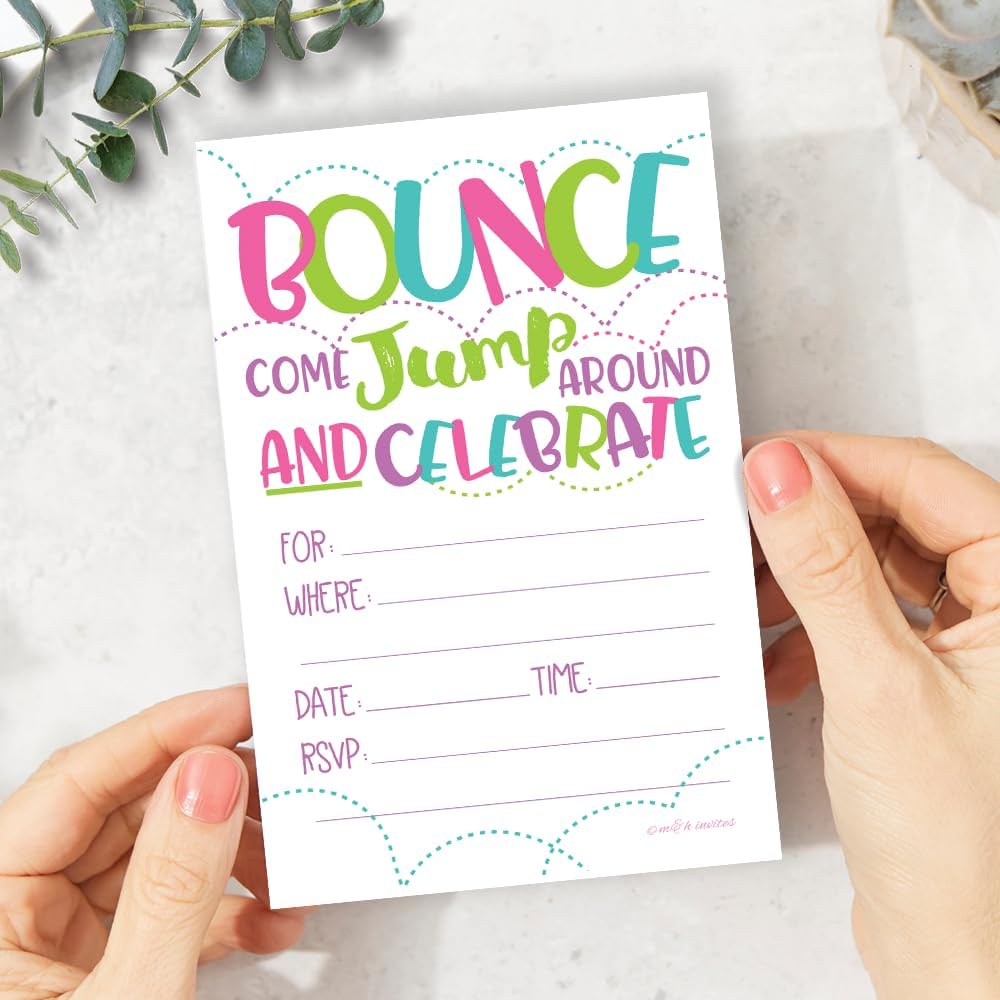 BOUNCE
COME Jump AROUND
AND CELEBRATE
FOR:
WHERE:
DATE: TIME:
RSVP:
© m&h invites